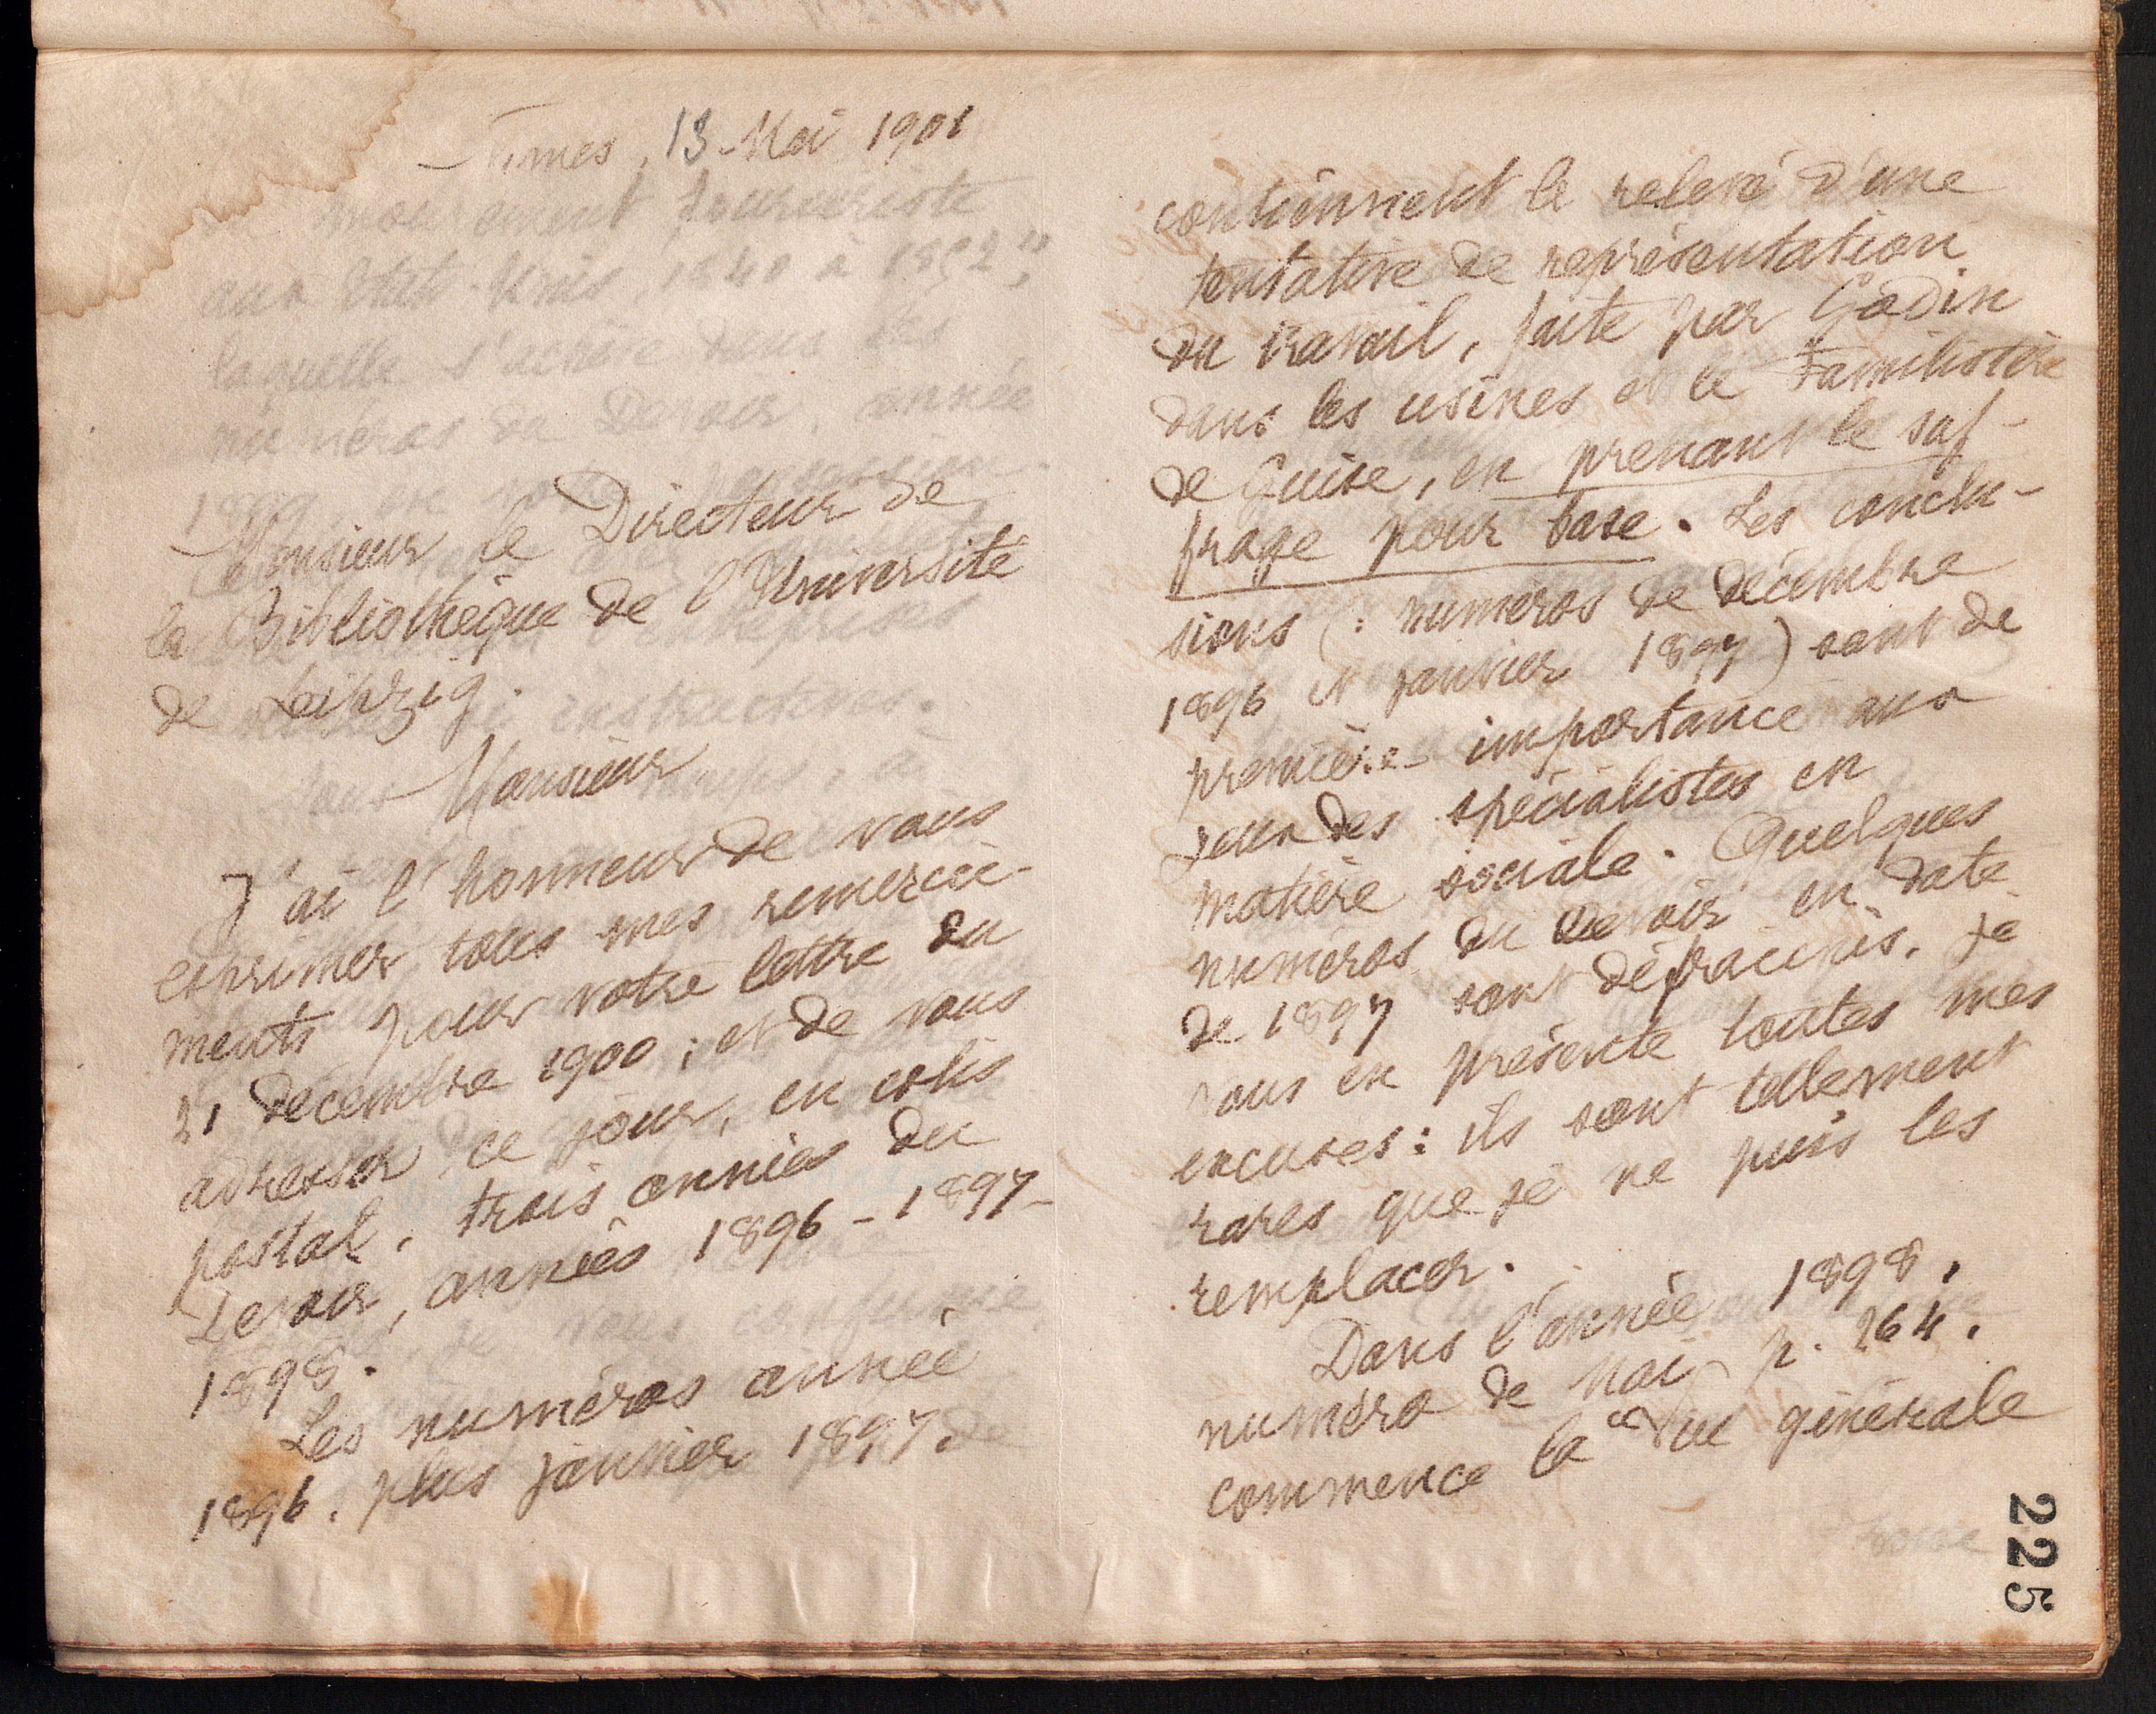 Nîmes, 13 Mai 1901
Monsieur le Directeur de
la Bibliothèque de l'Université
de Leipzig.
Monsieur
J'ai l'honneur de vous
exprimer tous mes remercie-
ments pour votre lettre du
21 décembre 1900 ; et de vous
adresser ce jour, en colis
postal, trois années du
Devoir, années 1896 - 1897 -
1898.
Les numéros année
1896, plus janvier 1897,
contiennent le relevé d'une
tentative de représentation
du travail, faite par Godin
dans les usines et le Familistère
de Guise, en prenant le suf-
frage pour base. Les conclu-
sions (: numéros de décembre
1896 et janvier 1897) sont de
première importance aux
yeux des spécialistes en
matière sociale. Quelques
numéros du Devoir en date
de 1897 sont défraîchis. Je
vous en présente toutes mes
excuses : ils sont tellement
rares que je ne puis les
remplacer.
Dans l'année 1898,
numéro de Mai, p. 264,
commence la "Vue générale
225